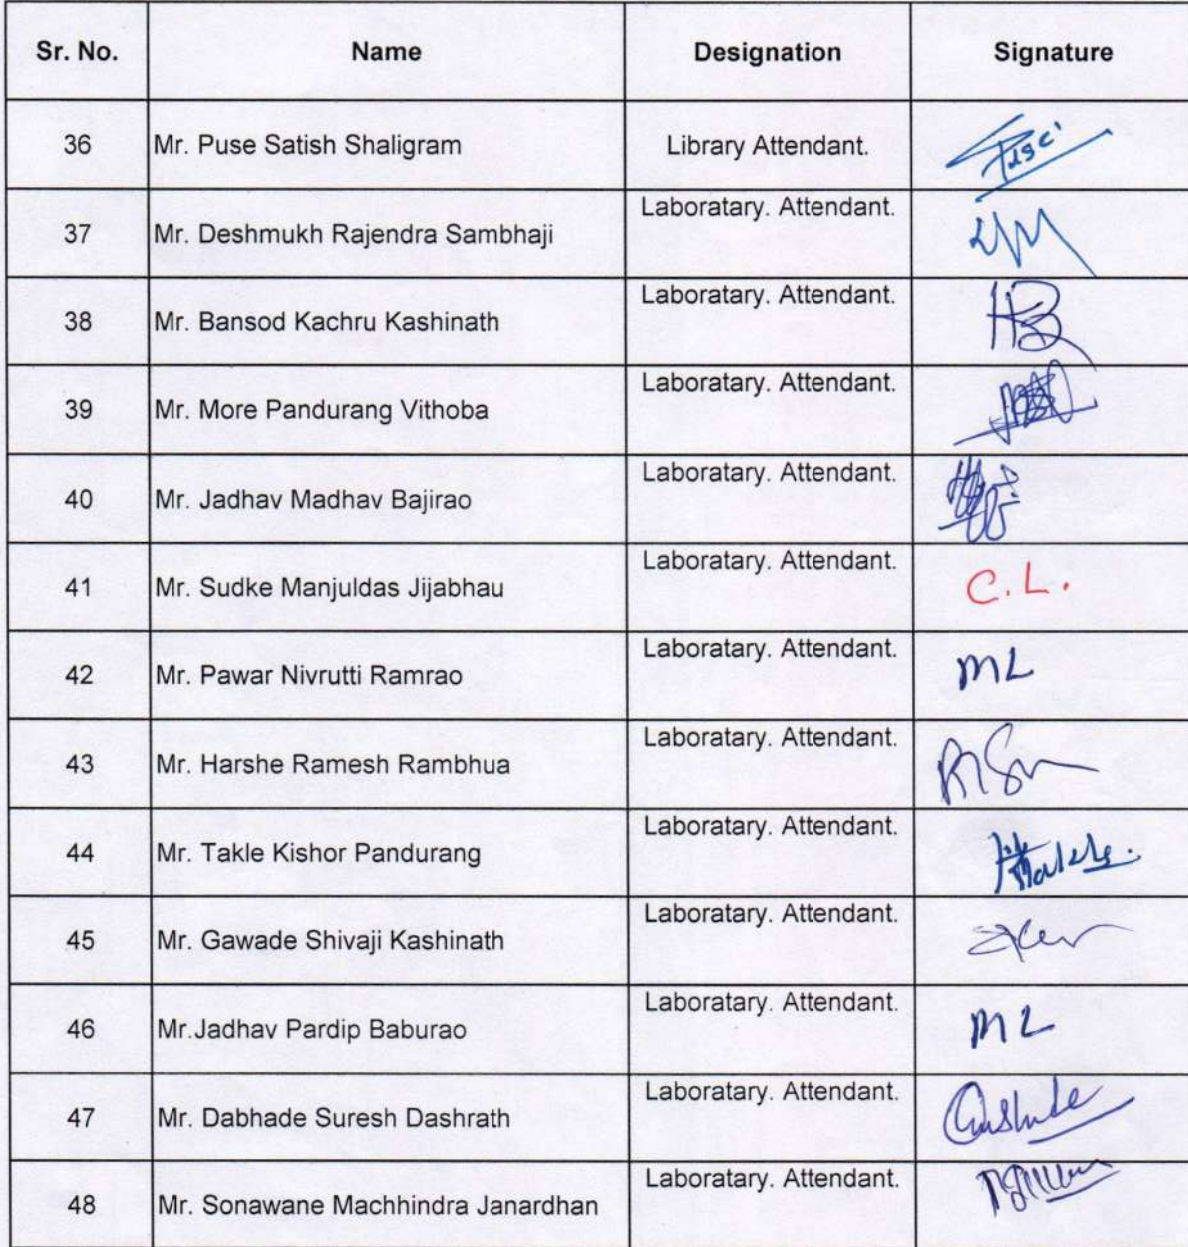 Sr. No. Name Designation Signature
36 Mr. Puse Satish Shaligram Library Attendant.
37 Mr. Deshmukh Rajendra Sambhaji Laboratary. Attendant.
38 Mr. Bansod Kachru Kashinath Laboratary. Attendant.
39 Mr. More Pandurang Vithoba Laboratary. Attendant.
40 Mr. Jadhav Madhav Bajirao Laboratary. Attendant.
41 Mr. Sudke Manjuldas Jijabhau Laboratary. Attendant. C.L.
42 Mr. Pawar Nivrutti Ramrao Laboratary. Attendant. ML
43 Mr. Harshe Ramesh Rambhua Laboratary. Attendant.
44 Mr. Takle Kishor Pandurang Laboratary. Attendant.
45 Mr. Gawade Shivaji Kashinath Laboratary. Attendant.
46 Mr.Jadhav Pardip Baburao Laboratary. Attendant. ML
47 Mr. Dabhade Suresh Dashrath Laboratary. Attendant.
48 Mr. Sonawane Machhindra Janardhan Laboratary. Attendant.